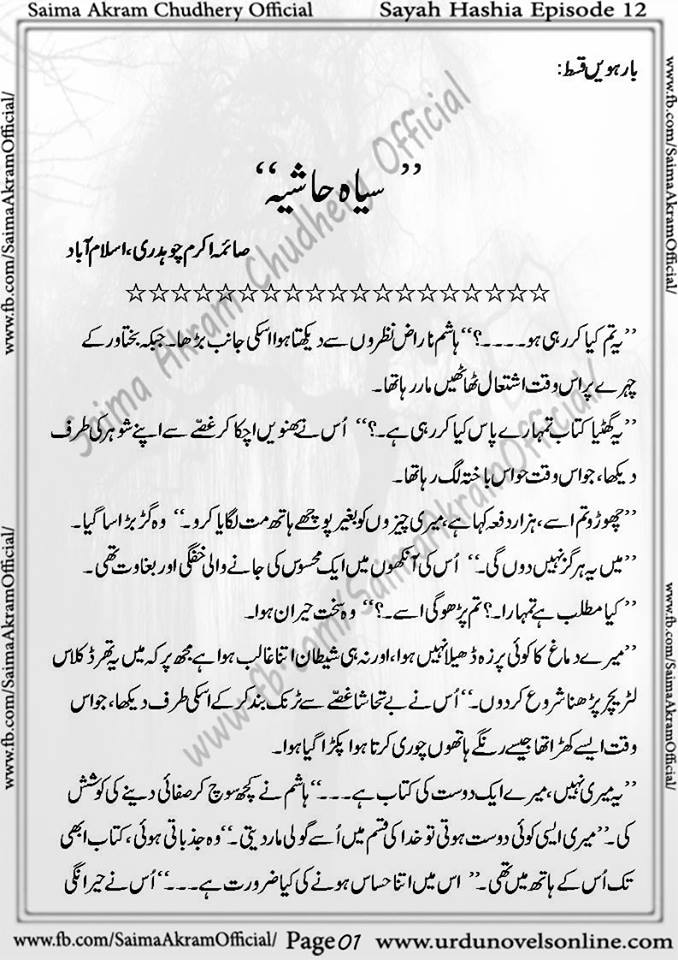 Saima Akram Chudhery Official Sayah Hashia Episode 12
بارہویں قسط:
’’سیاہ حاشیہ‘‘
صائمہ اکرم چوہدری، اسلام آباد
☆☆☆☆☆☆☆☆☆☆☆☆☆☆☆☆☆☆☆
’’یہ تم کیا کر رہی ہو۔۔۔۔؟‘‘ ہاشم ناراض نظروں سے دیکھتا ہوا اسکی جانب بڑھا۔ جبکہ بختاور کے
چہرے پر اس وقت اشتعال ٹھاٹھیں مار رہا تھا۔
’’یہ گھٹیا کتاب تمہارے پاس کیا کر رہی ہے۔؟‘‘ اُس نے بھنویں اچکا کر غصّے سے اپنے شوہر کی طرف
دیکھا، جو اس وقت حواس باختہ لگ رہا تھا۔
’’چھوڑو تم اسے، ہزار دفعہ کہا ہے، میری چیزوں کو بغیر پوچھے ہاتھ مت لگایا کرو۔‘‘ وہ گڑبڑا سا گیا۔
’’میں یہ ہرگز نہیں دوں گی۔‘‘ اُس کی آنکھوں میں ایک محسوس کی جانے والی خفگی اور بغاوت تھی۔
’’کیا مطلب ہے تمہارا۔؟ تم پڑھو گی اسے۔؟‘‘ وہ سخت حیران ہوا۔
’’میرے دماغ کا کوئی پرزہ ڈھیلا نہیں ہوا، اور نہ ہی شیطان اتنا غالب ہوا ہے مجھ پر کہ میں یہ تھرڈ کلاس
لٹریچر پڑھنا شروع کردوں۔‘‘ اُس نے بے تحاشا غصّے سے ٹرنک بند کر کے اسکی طرف دیکھا، جو اس
وقت ایسے کھڑا تھا جیسے رنگے ہاتھوں چوری کرتا ہوا پکڑا گیا ہوا۔
’’یہ میری نہیں، میرے ایک دوست کی کتاب ہے۔۔۔‘‘ ہاشم نے کچھ سوچ کر صفائی دینے کی کوشش
کی۔ ’’میری ایسی کوئی دوست ہوتی تو خدا کی قسم میں اُسے گولی مار دیتی۔‘‘ وہ جذباتی ہوئی، کتاب ابھی
تک اُس کے ہاتھ میں تھی۔ ’’اس میں اتنا حساس ہونے کی کیا ضرورت ہے۔۔۔‘‘ اُس نے حیرانگی
www.fb.com/SaimaAkramOfficial/ Page 01 www.urdunovelsonline.com
www.fb.com/SaimaAkramOfficial/
www.fb.com/SaimaAkramOfficial/
www.fb.com/SaimaAkramOfficial/
www.fb.com/SaimaAkramOfficial/
Saima Akram Chudhery Official
www.fb.com/SaimaAkramOfficial/